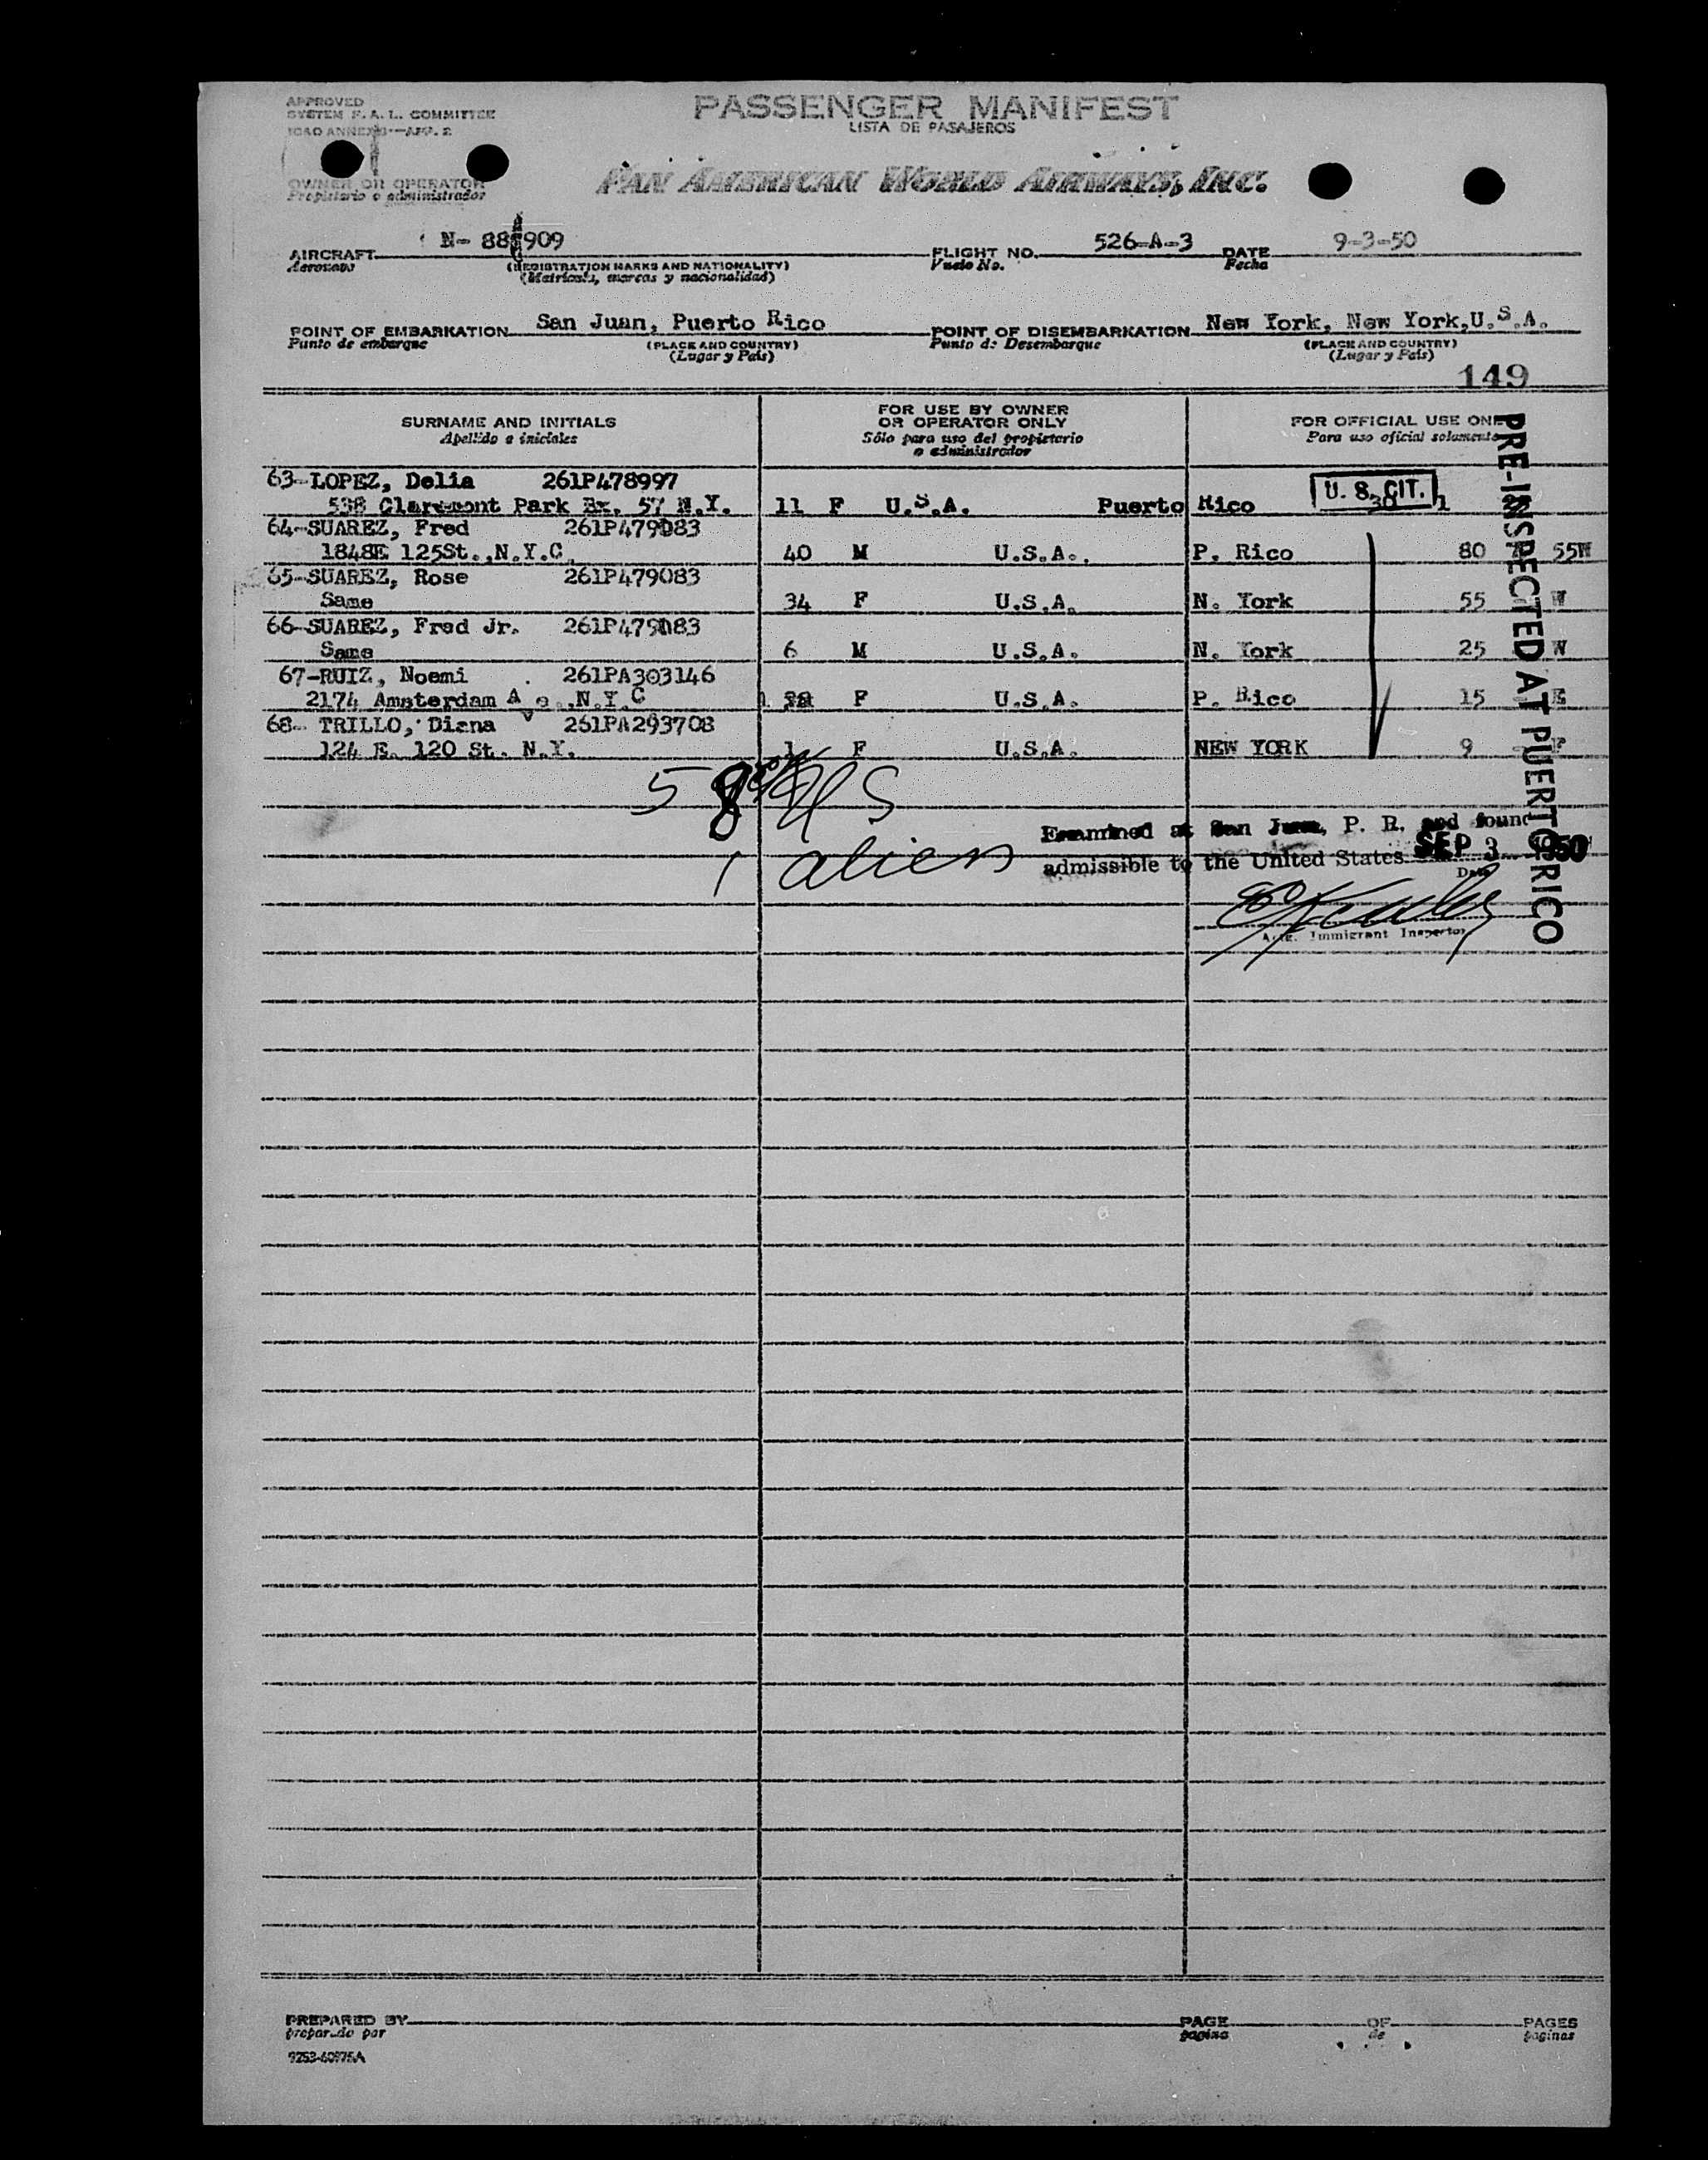 APPROVED
SYSTEM F. A. L. COMMITTEE
ICAO ANNEX 9—APP. 2
PASSENGER MANIFEST
LISTA DE PASAJEROS
OWNER OR OPERATOR
Propietario o administrador
PAN AMERICAN WORLD AIRWAYS, INC.
AIRCRAFT N- 88909 FLIGHT NO. 526-A-3 DATE 9-3-50
Aeronave (REGISTRATION MARKS AND NATIONALITY) Vuelo No. Fecha
(Matrícula, marcas y nacionalidad)
POINT OF EMBARKATION San Juan, Puerto Rico POINT OF DISEMBARKATION New York, New York,U.S.A.
Punto de embarque (PLACE AND COUNTRY) Punto de Desembarque (PLACE AND COUNTRY)
(Lugar y País) (Lugar y País)
149
SURNAME AND INITIALS FOR USE BY OWNER OR OPERATOR ONLY FOR OFFICIAL USE ONL
Apellido e iniciales Sólo para uso del propietario o administrador Para uso oficial solamente
63-LOPEZ, Delia 261P478997
538 Claremont Park Bx. 57 N.Y. 11 F U.S.A. Puerto Rico U. S. CIT. 30 1
64-SUAREZ, Fred 261P479083
1848E 125St.,N.Y.C. 40 M U.S.A. P. Rico 80 55W
65-SUAREZ, Rose 261P479083
Same 34 F U.S.A. N. York 55 W
66-SUAREZ, Fred Jr. 261P479083
Same 6 M U.S.A. N. York 25 W
67-RUIZ, Noemi 261PA303146
2174 Amsterdam Ave.,N.Y.C F U.S.A. P. Rico 15
68- TRILLO, Diana 261PA293708
124 E. 120 St. N.Y. 1 F U.S.A. NEW YORK 9
PRE-INSPECTED AT PUERTO RICO
58 US
1 alien
Examined at San Juan, P. R. and found
admissible to the United States SEP 3 1950
Date
Actg. Immigrant Inspector
PREPARED BY PAGE OF PAGES
preparado por página de páginas
9253-60975A